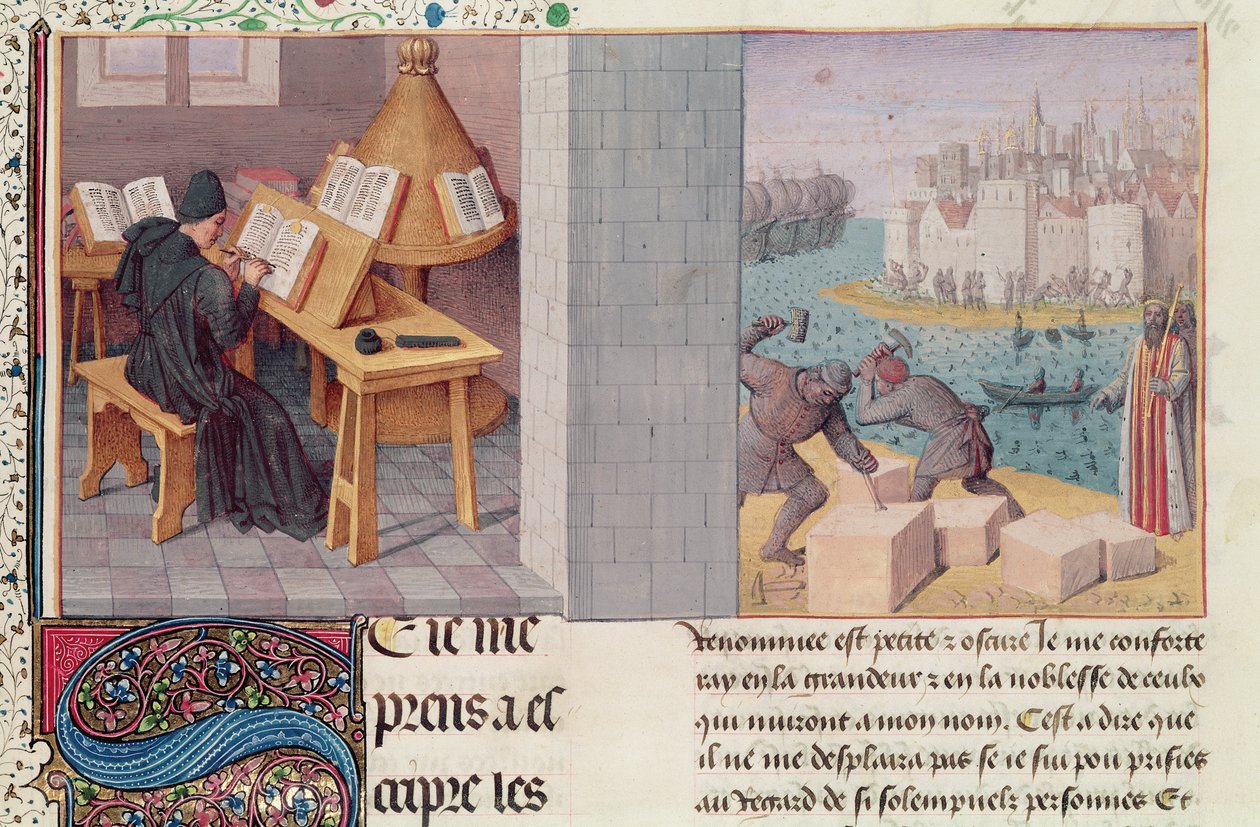 SE ie me
prens a es
cripre les
Renommee est petite z oscure Ie me conforte
ray en la grandeur z en la noblesse de ceulx
qui nuiront a mon nom. Cest a dire que
il ne me desplaira pas se ie sui pou prisies
au Regard de si solempnelz personnes Et